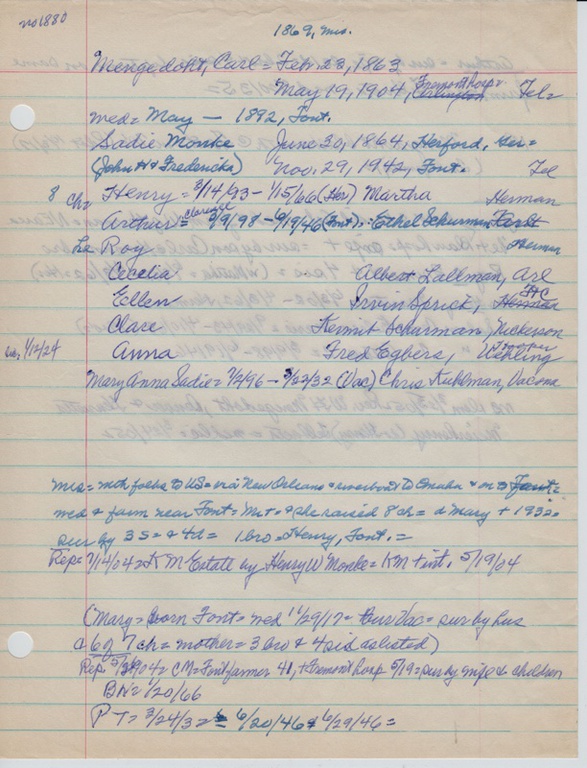 no 1880
1869, mo.
Mengedoht, Carl = Feb. 23, 1863
May 19, 1904, Fremont hosp = Tel=
Arlington
med = May — 1892, Font.
Sadie Monke June 30, 1864, Herford, Ger.=
(John H & Fredericka) Nov. 29, 1942, Font. Tel
8 ch= Henry = 3/14/93 - 1/15/66 (Her) Martha Herman
Clarence
Arthur = 2/9/98 - 9/19/46 (Font) : Ethel Schurman Font
Roy Herman
Cecelia Albert Lallman, Arl
Ellen Irvin Sprick, Herman
Clare Kermit Schurman, Nickerson
1/12/24 Anna Fred Egbers, Uehling
Mary Anna Sadie = 7/2/96 - 3/22/32 (Vac) Chris Kuhlman, Vacoma
mrs = with folks to US = via New Orleans & riverboat to Omaha & on to Font =
med & farm near Font = Mr + & she raised 8 ch = d Mary + 1932 =
sur by 3 s = & 4 d = 1 bro = Henry, Font. =
Rep = 7/14/04 = K M Estate by Henry W Monke = KM + int. 5/19/04
(Mary = born Font = med 11/29/17 = Vac = sur by hus
& 6 of 7 ch = mother = 3 bro & 4 sis as listed)
Rep 5/ 1904 = CM = Font farmer 41, + Fremont hosp 5/19 = sur by wife & children
BN = 1/20/66
P T = 3/24/32 = 6/20/46 & 6/29/46 =